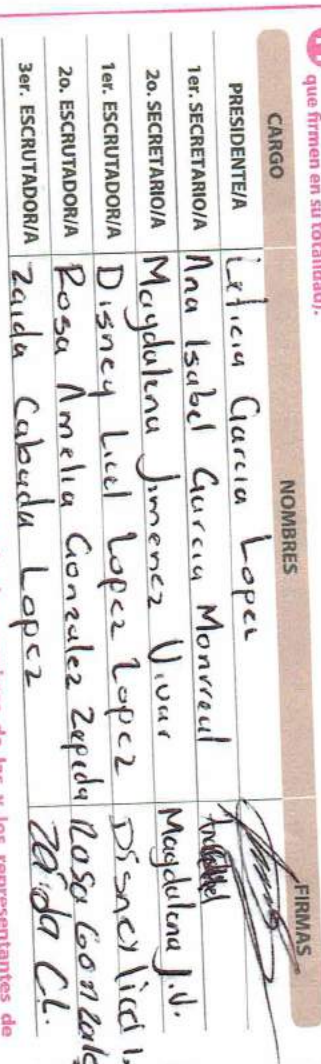 que firmen en su totalidad).
CARGO NOMBRES FIRMAS
PRESIDENTE/A Leticia Garcia Lopez
1er. SECRETARIO/A Ana Isabel Garcia Monreal
2o. SECRETARIO/A Magdalena Jimenez Vivar Magdalena J.V.
1er. ESCRUTADOR/A Disney Licel Lopez Lopez Disney licel L
2o. ESCRUTADOR/A Rosa Amelia Gonzalez Zepeda Rosa Gonzale
3er. ESCRUTADOR/A Zaida Cabada Lopez Zaida C.L.
de las y los representantes de